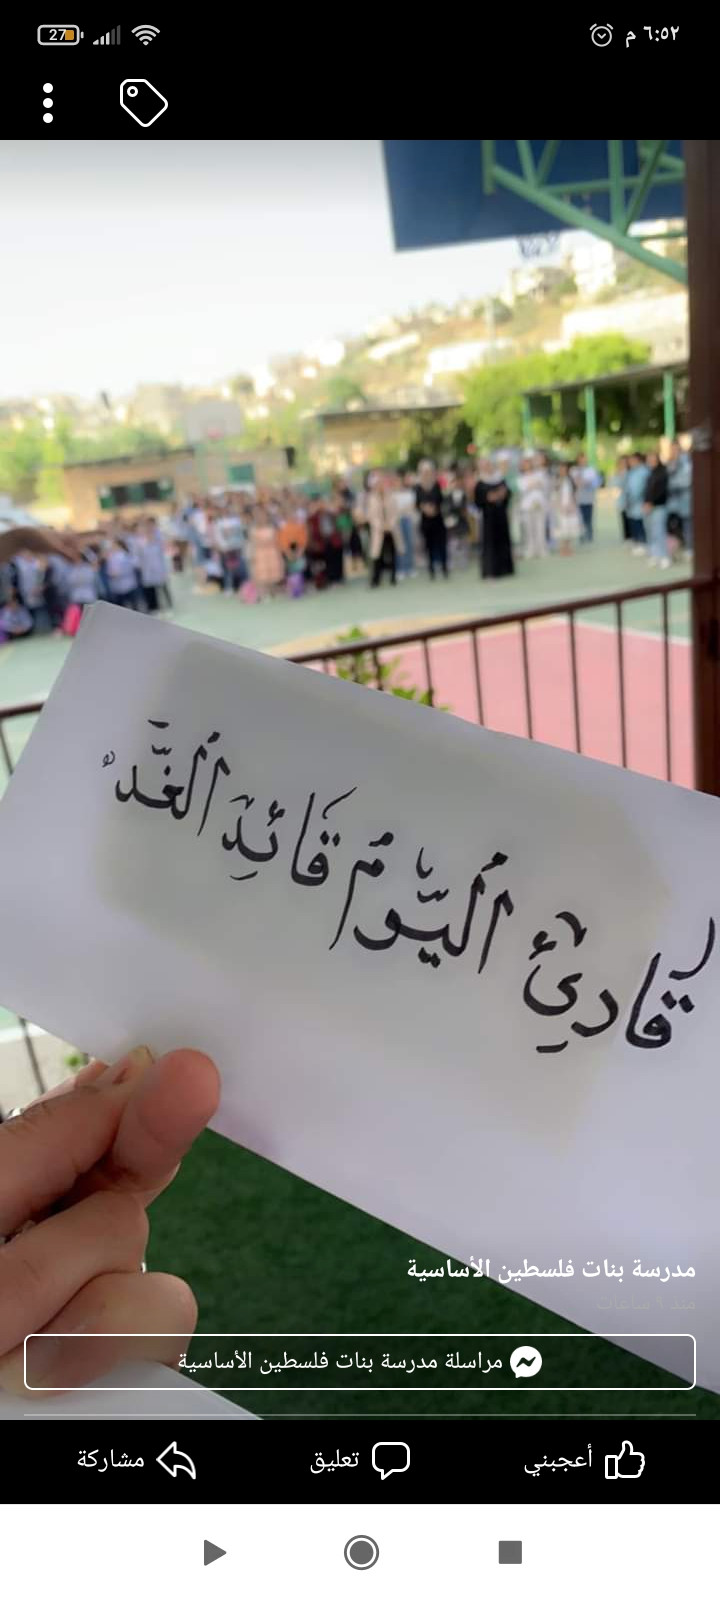 27
٦:٥٢ م
قَارِئُ ٱلْيَوْمِ قَائِدُ ٱلْغَدِ
مدرسة بنات فلسطين الأساسية
منذ ٩ ساعات
مراسلة مدرسة بنات فلسطين الأساسية
أعجبني
تعليق
مشاركة